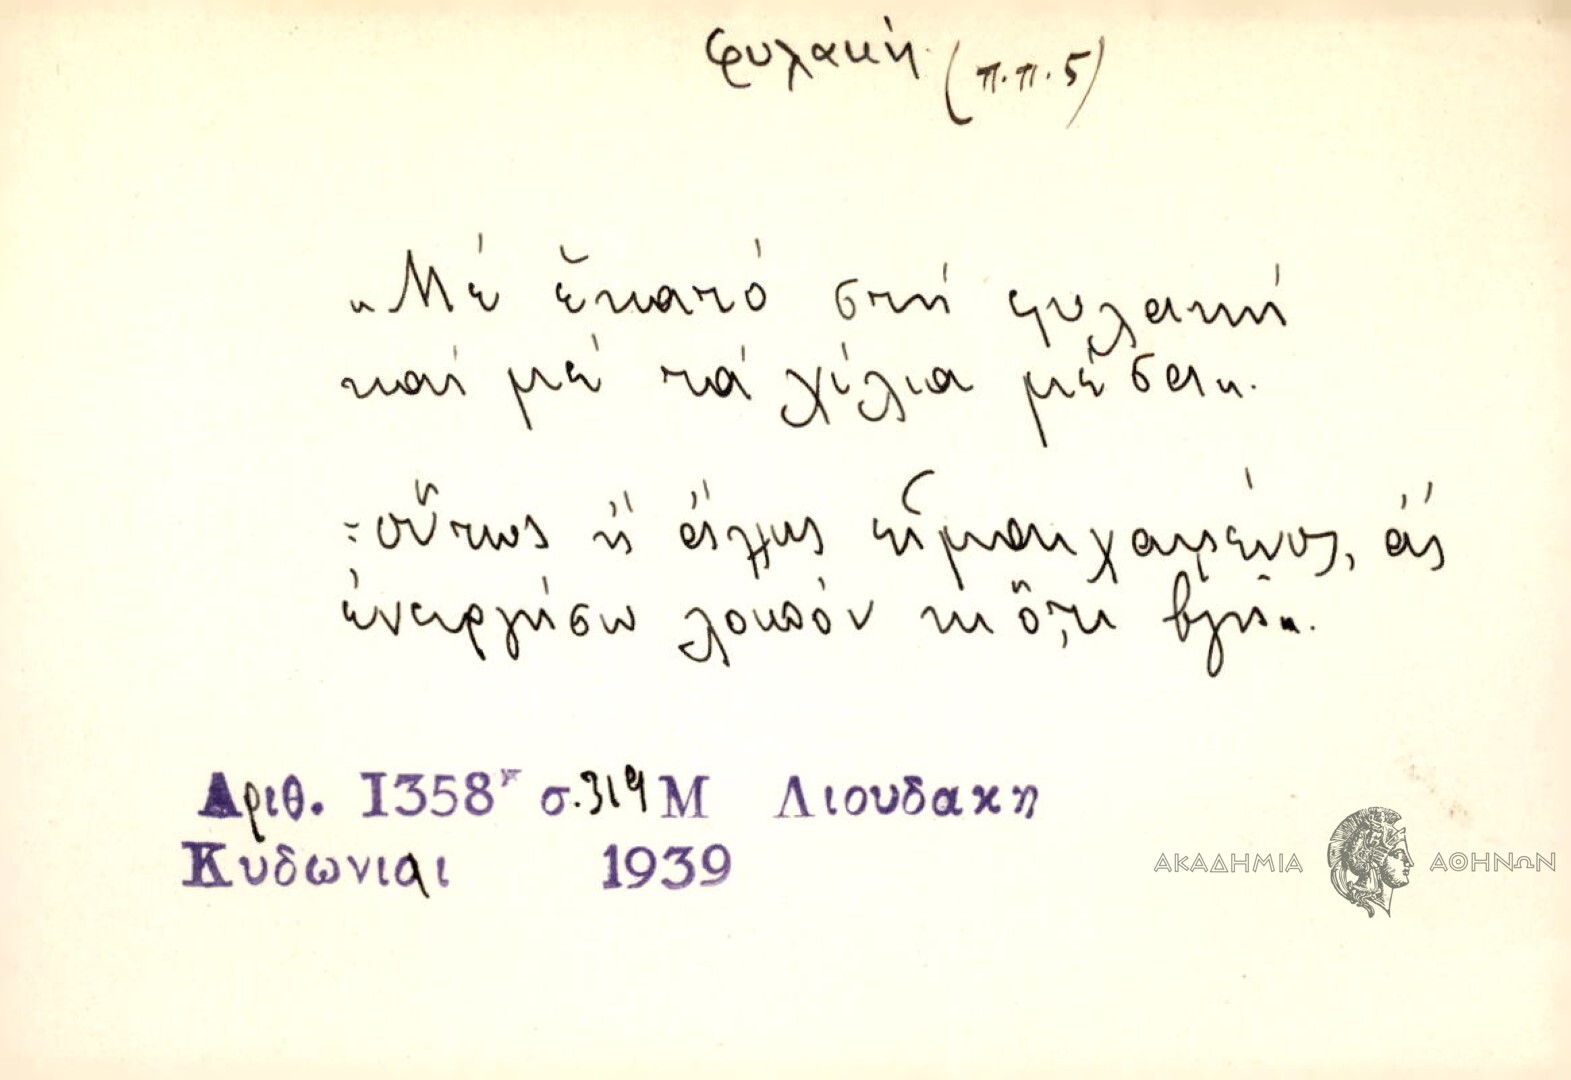 φυλακή (π.π. 5)
"Μέ ἑκατό στή φυλακή
καί μέ τά χίλια μέσα".
=οὕτως ἤ ἄλλως εἶμαι χαμένος, ἄς
ἐνεργήσω λοιπόν κι ὅ,τι βγῆ".
Αριθ. 1358 σ.319 Μ Λιουδακη
Κυδωνιαι 1939
ΑΚΑΔΗΜΙΑ ΑΘΗΝΩΝ